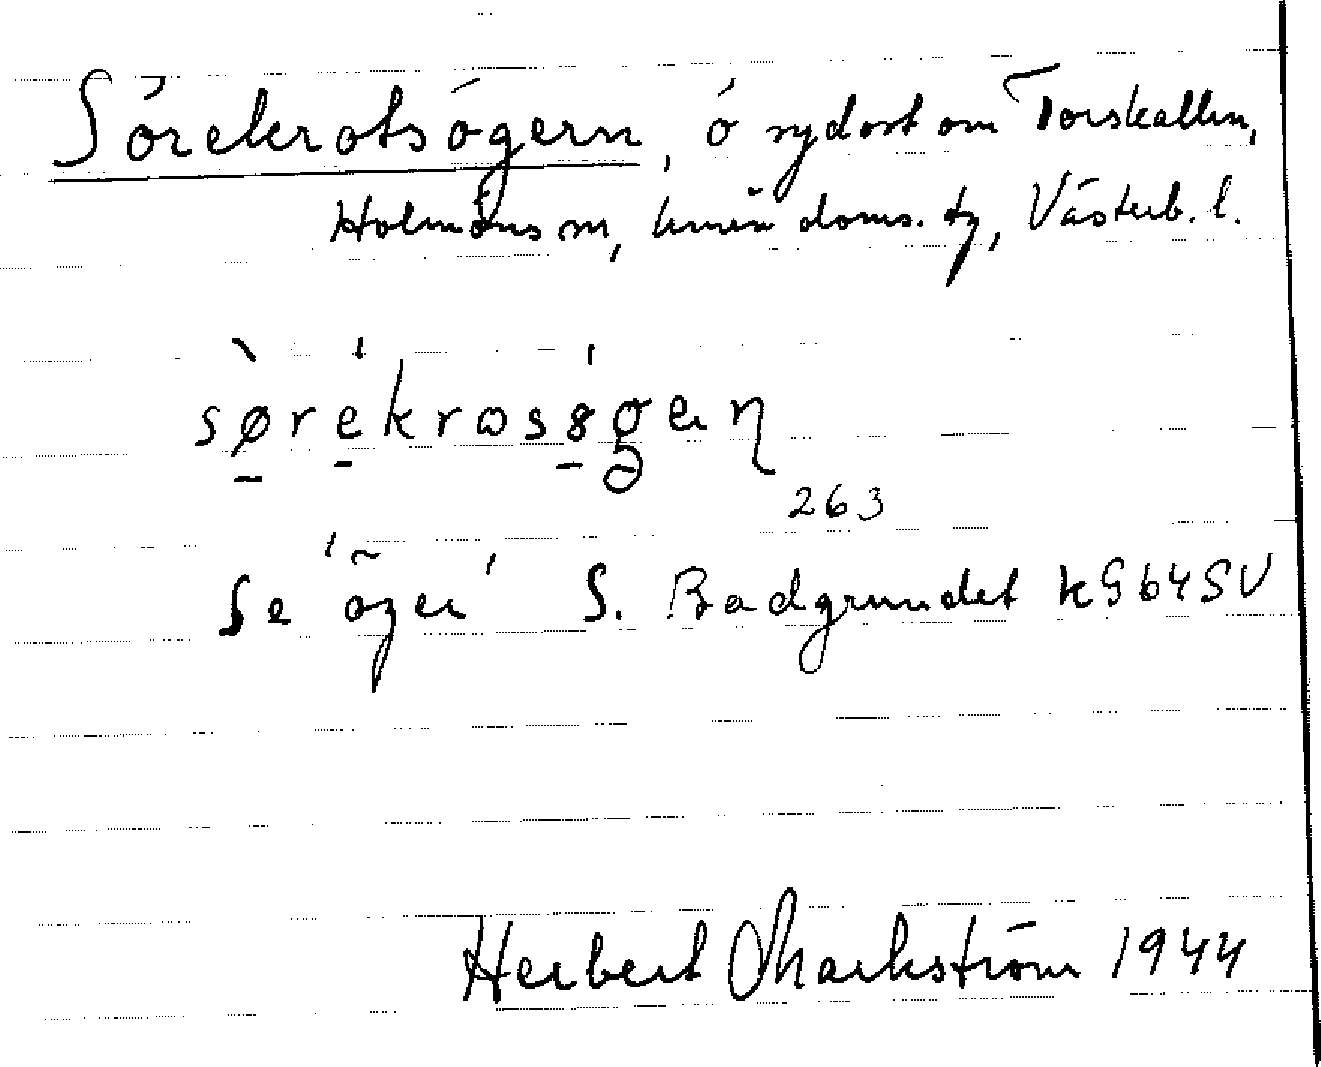 Sörekrotsögern, ö sydost om Torskallen,
Holmöns sn, Umeå doms. tg, Västerb. l.
sørekrosøgeɳ
263
Se öger S. Badgrundet k964SV
Herbert Markström 1944